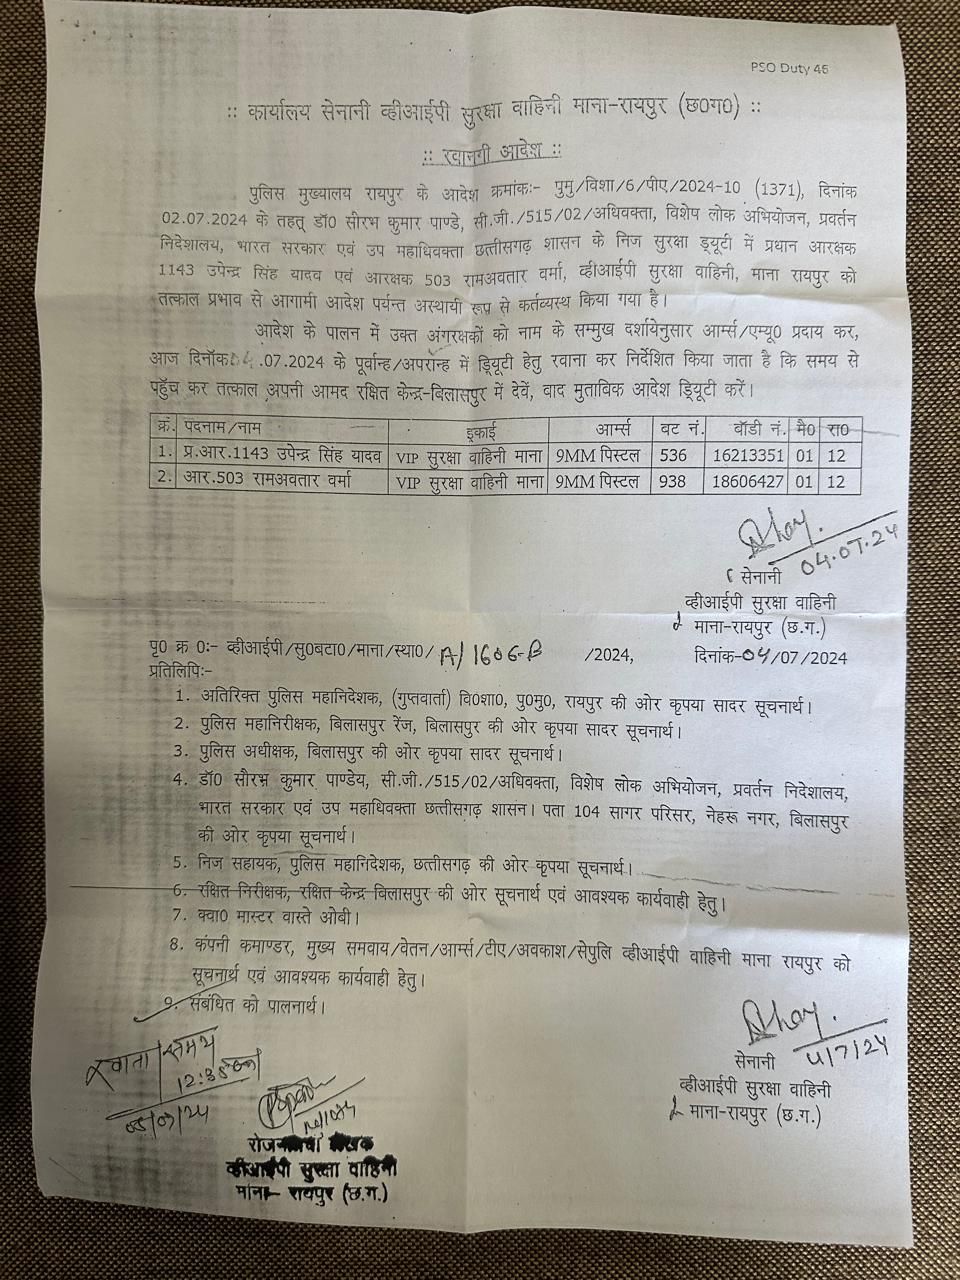 PSO Duty 46
:: कार्यालय सेनानी व्हीआईपी सुरक्षा वाहिनी माना-रायपुर (छ0ग0) ::
:: रवानगी आदेश ::
पुलिस मुख्यालय रायपुर के आदेश क्रमांक:- पुमु/विशा/6/पीए/2024-10 (1371), दिनांक
02.07.2024 के तहत् डॉ0 सौरभ कुमार पाण्डे, सी.जी./515/02/अधिवक्ता, विशेष लोक अभियोजन, प्रवर्तन
निदेशालय, भारत सरकार एवं उप महाधिवक्ता छत्तीसगढ़ शासन के निज सुरक्षा ड्यूटी में प्रधान आरक्षक
1143 उपेन्द्र सिंह यादव एवं आरक्षक 503 रामअवतार वर्मा, व्हीआईपी सुरक्षा वाहिनी, माना रायपुर को
तत्काल प्रभाव से आगामी आदेश पर्यन्त अस्थायी रूप से कर्तव्यस्थ किया गया है।
आदेश के पालन में उक्त अंगरक्षकों को नाम के सम्मुख दर्शायेनुसार आर्म्स/एम्यू0 प्रदाय कर,
आज दिनॉक 04.07.2024 के पूर्वान्ह/अपरान्ह में ड्यिूटी हेतु रवाना कर निर्देशित किया जाता है कि समय से
पहुँच कर तत्काल अपनी आमद रक्षित केन्द्र-बिलासपुर में देवें, बाद मुताविक आदेश ड्यिूटी करें।
क्रं. पदनाम/नाम इकाई आर्म्स बट नं. बॉडी नं. मै0 रा0
1. प्र.आर.1143 उपेन्द्र सिंह यादव VIP सुरक्षा वाहिनी माना 9MM पिस्टल 536 16213351 01 12
2. आर.503 रामअवतार वर्मा VIP सुरक्षा वाहिनी माना 9MM पिस्टल 938 18606427 01 12
04.07.24
सेनानी
व्हीआईपी सुरक्षा वाहिनी
माना-रायपुर (छ.ग.)
पृ0 क्र 0:- व्हीआईपी/सु0बटा0/माना/स्था0/ A/1606-B /2024, दिनांक-04/07/2024
प्रतिलिपि:-
1. अतिरिक्त पुलिस महानिदेशक, (गुप्तवार्ता) वि0शा0, पु0मु0, रायपुर की ओर कृपया सादर सूचनार्थ।
2. पुलिस महानिरीक्षक, बिलासपुर रेंज, बिलासपुर की ओर कृपया सादर सूचनार्थ।
3. पुलिस अधीक्षक, बिलासपुर की ओर कृपया सादर सूचनार्थ।
4. डॉ0 सौरभ कुमार पाण्डेय, सी.जी./515/02/अधिवक्ता, विशेष लोक अभियोजन, प्रवर्तन निदेशालय,
भारत सरकार एवं उप महाधिवक्ता छत्तीसगढ़ शासन। पता 104 सागर परिसर, नेहरू नगर, बिलासपुर
की ओर कृपया सूचनार्थ।
5. निज सहायक, पुलिस महानिदेशक, छत्तीसगढ़ की ओर कृपया सूचनार्थ।
6. रक्षित निरीक्षक, रक्षित केन्द्र बिलासपुर की ओर सूचनार्थ एवं आवश्यक कार्यवाही हेतु।
7. क्वा0 मास्टर वास्ते ओबी।
8. कंपनी कमाण्डर, मुख्य समवाय/वेतन/आर्म्स/टीए/अवकाश/सेपुलि व्हीआईपी वाहिनी माना रायपुर को
सूचनार्थ एवं आवश्यक कार्यवाही हेतु।
9. संबंधित को पालनार्थ।
4/7/24
सेनानी
व्हीआईपी सुरक्षा वाहिनी
माना-रायपुर (छ.ग.)
समय
12:35
व्हीआईपी सुरक्षा वाहिनी
माना- रायपुर (छ.ग.)